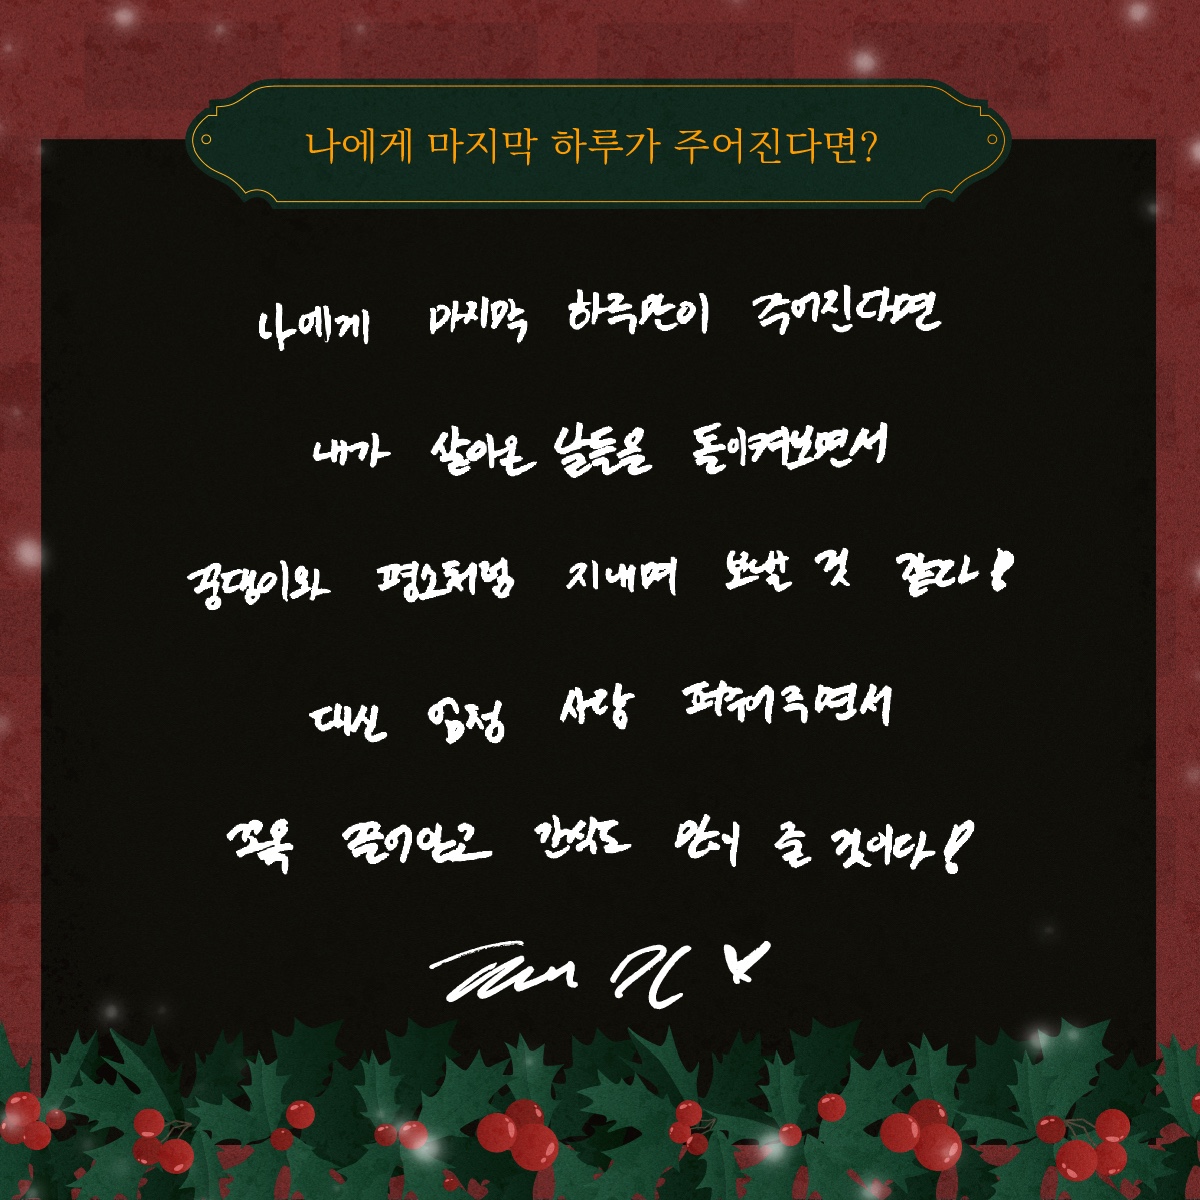 나에게 마지막 하루가 주어진다면?
나에게 마지막 하루만이 주어진다면
내가 살아온 날들을 돌이켜보면서
꽁댕이와 평소처럼 지내며 보낼 것 같다!
대신 엄청 사랑 퍼줘주면서
꼬옥 끌어안고 간식도 많이 줄 것이다!